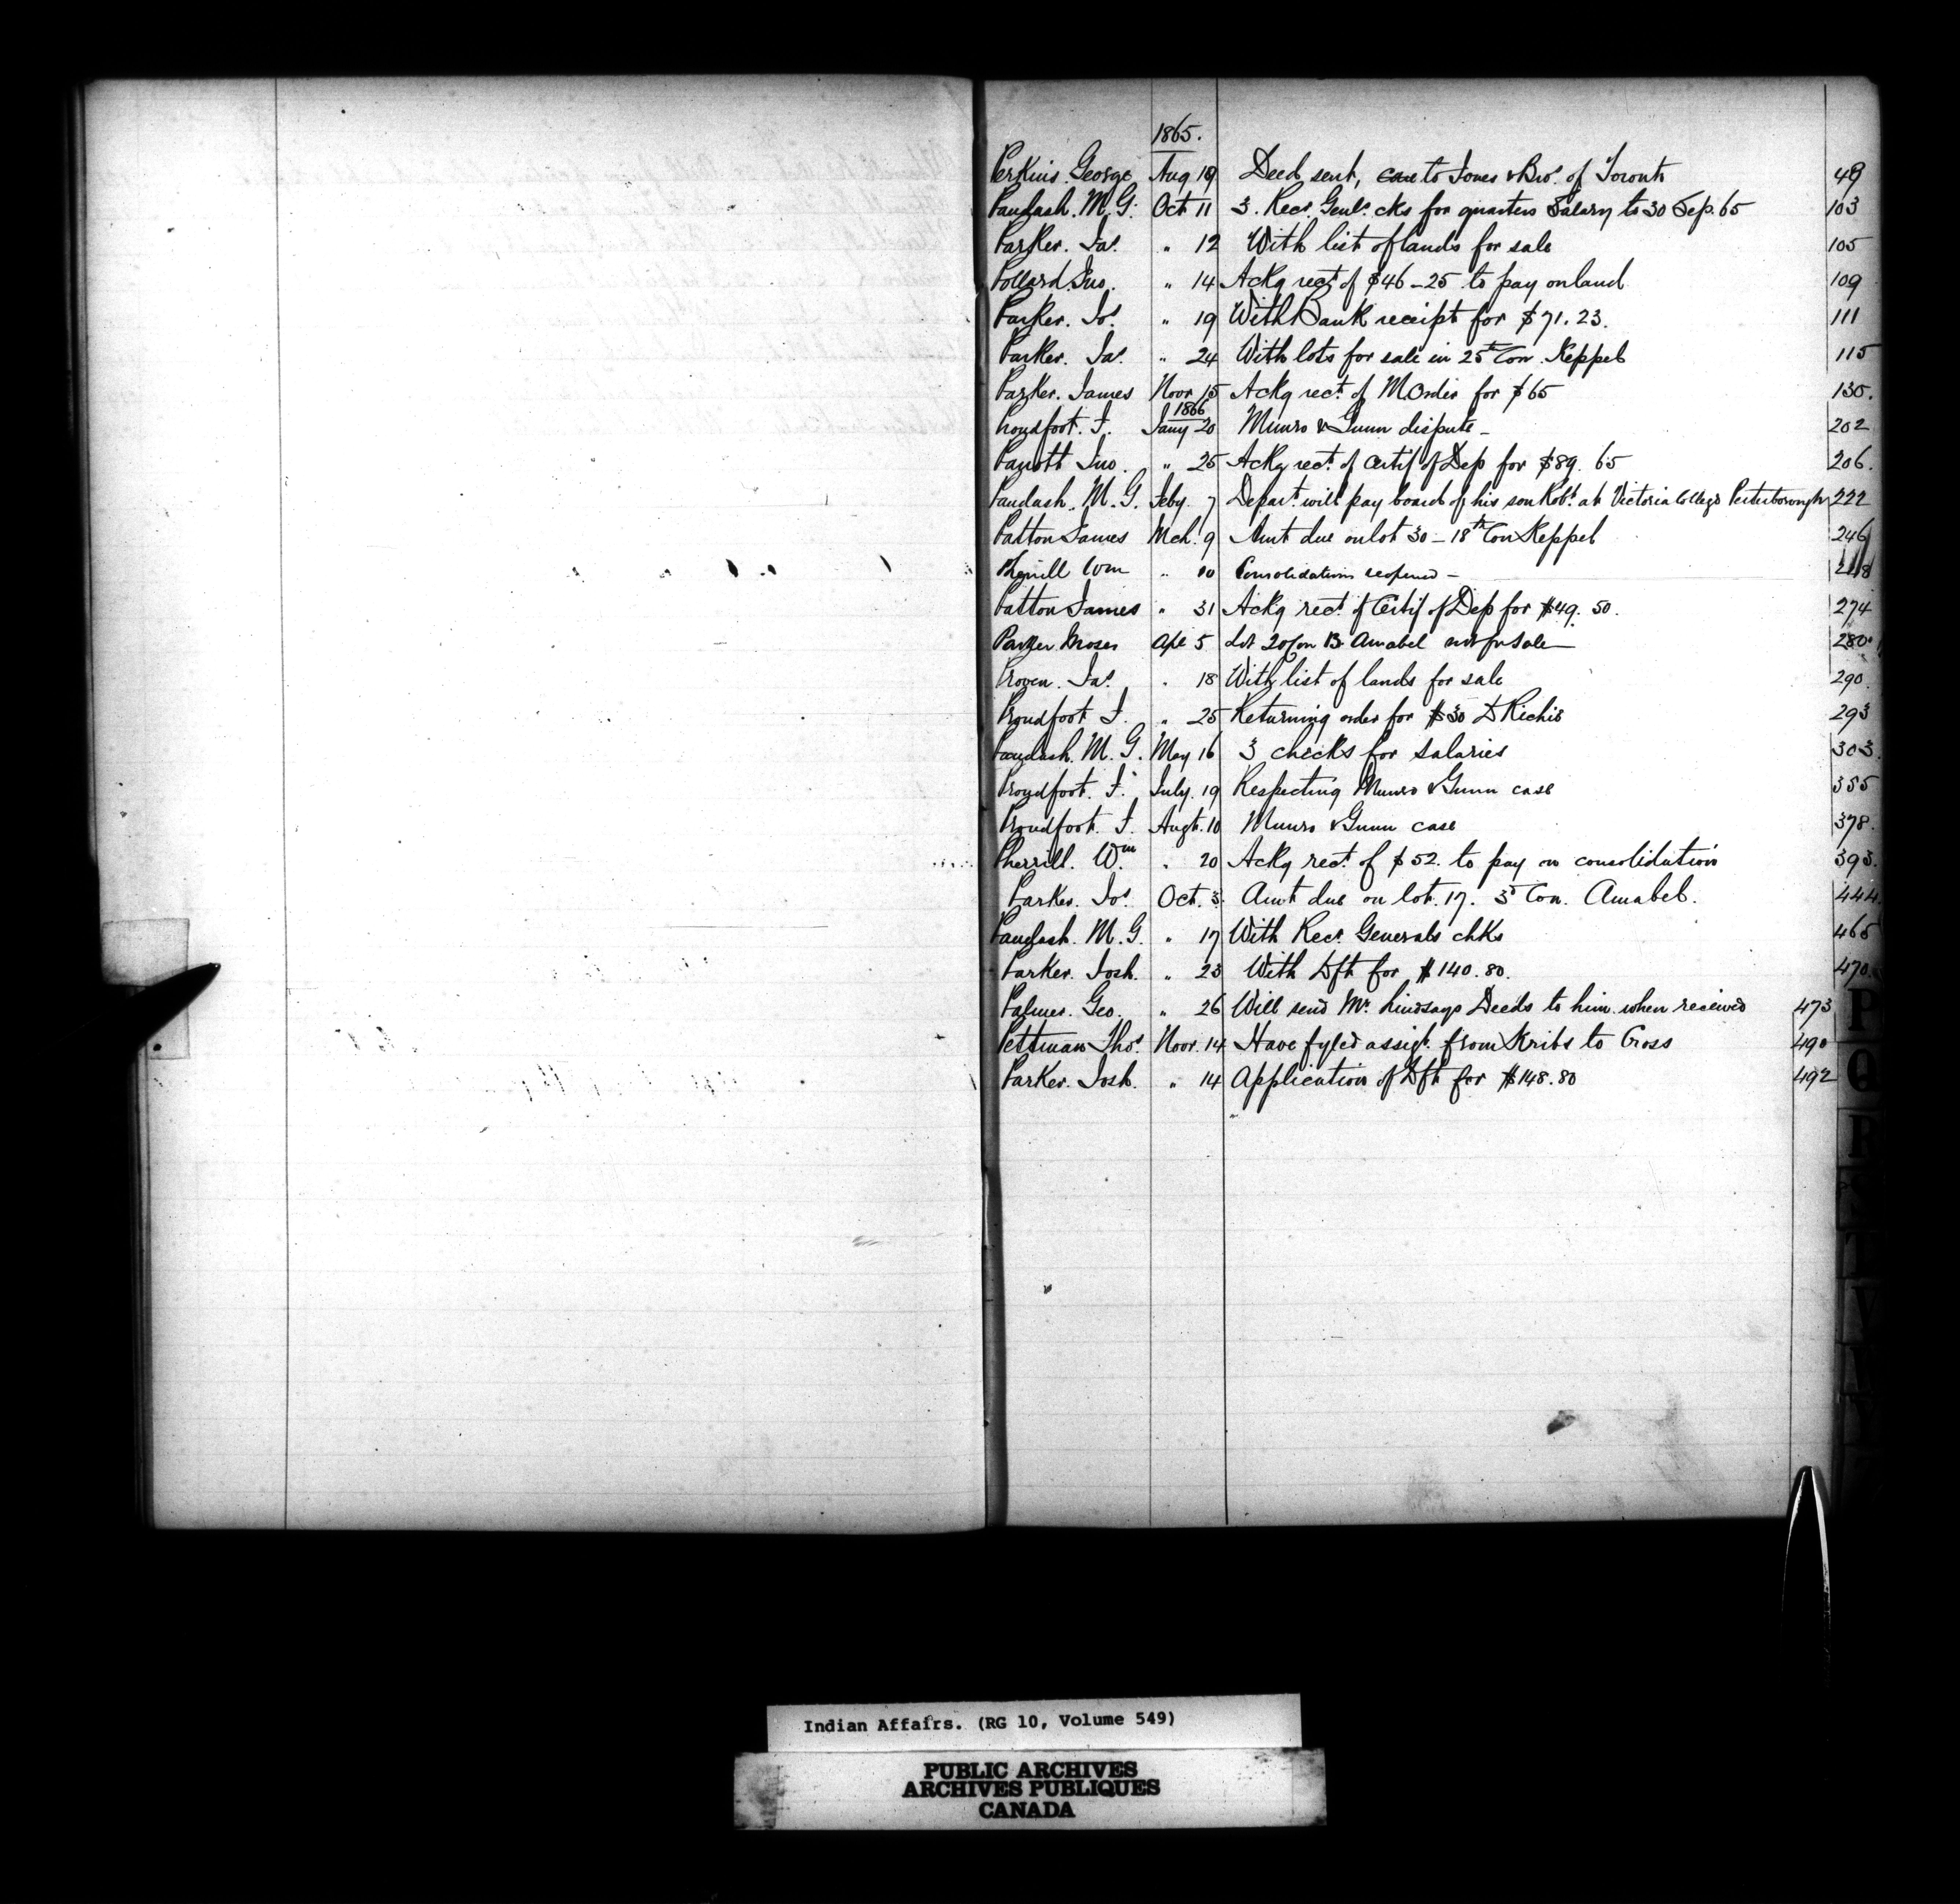 1865.
Perkins. George Aug 18 Deed sent, care to Jones & Bro. of Toronto 49
Paudash. M. G. Oct 11 3. Recr. Genls. cks for quarters Salary to 30 Sep. 65 103
Parker. Jas. " 12 With list of lands for sale 105
Pollard Jno. " 14 Ackg rect. of $46-25 to pay on land 109
Parker. Jos. " 19 With Bank receipt for $71.23. 111
Parker. Jas. " 24 With lots for sale in 25th Con. Keppel 115
Parker. James Novr 15 Ackg rect. of M Order for $65 130.
1866
Proudfoot. J. Jany 20 Munro & Gunn dispute - 202
Parrott Jno. " 25 Ackg rect. of Certif of Dep for $89. 65 206.
Paudash. M. G. Feby. 7 Depart. will pay board of his son Robt. at Victoria College Perterborough 222
Patton James Mch. 9 Amt due on lot 30 - 18th Con Keppel 246
Pherrill Wm " 10 Consolidations reopened -
Patton James " 31 Ackg rect. of Certif of Dep for $49. 50. 274
Parker Moses Apl 5 Lot 20 Con B. Amabel not for Sale - 280
Proven. Jas. " 18 With list of lands for sale 290.
Proudfoot J. " 25 Returning order for $30 D Richie 293
Paudash. M. G. May 16 3 checks for salaries 303.
Proudfoot. J. July. 19 Respecting Munro & Gunn case 355
Proudfoot. J. Augt. 10 Munro & Gunn case 378.
Pherrill. Wm. " 20 Ackg rect. of $52. to pay on consolidation 393.
Parker. Jos. Oct. 3. Amt due on lot. 17. 3d Con. Amabel. 444.
Paudash. M. G. " 17 With Recr. Generals chks 465
Parker. Josh. " 23 With Dft for $140.80. 470.
Palmer. Geo. " 26 Will send Mr. Lindsays Deeds to him when received 473
Pettman Thos. Novr. 14 Have fyled assigt. from Kribs to Cross 490
Parker. Josh. " 14 Application of Dft for $148.80 492
P
Q
R
S
T
V
W
Y
Indian Affairs. (RG 10, Volume 549)
PUBLIC ARCHIVES
ARCHIVES PUBLIQUES
CANADA